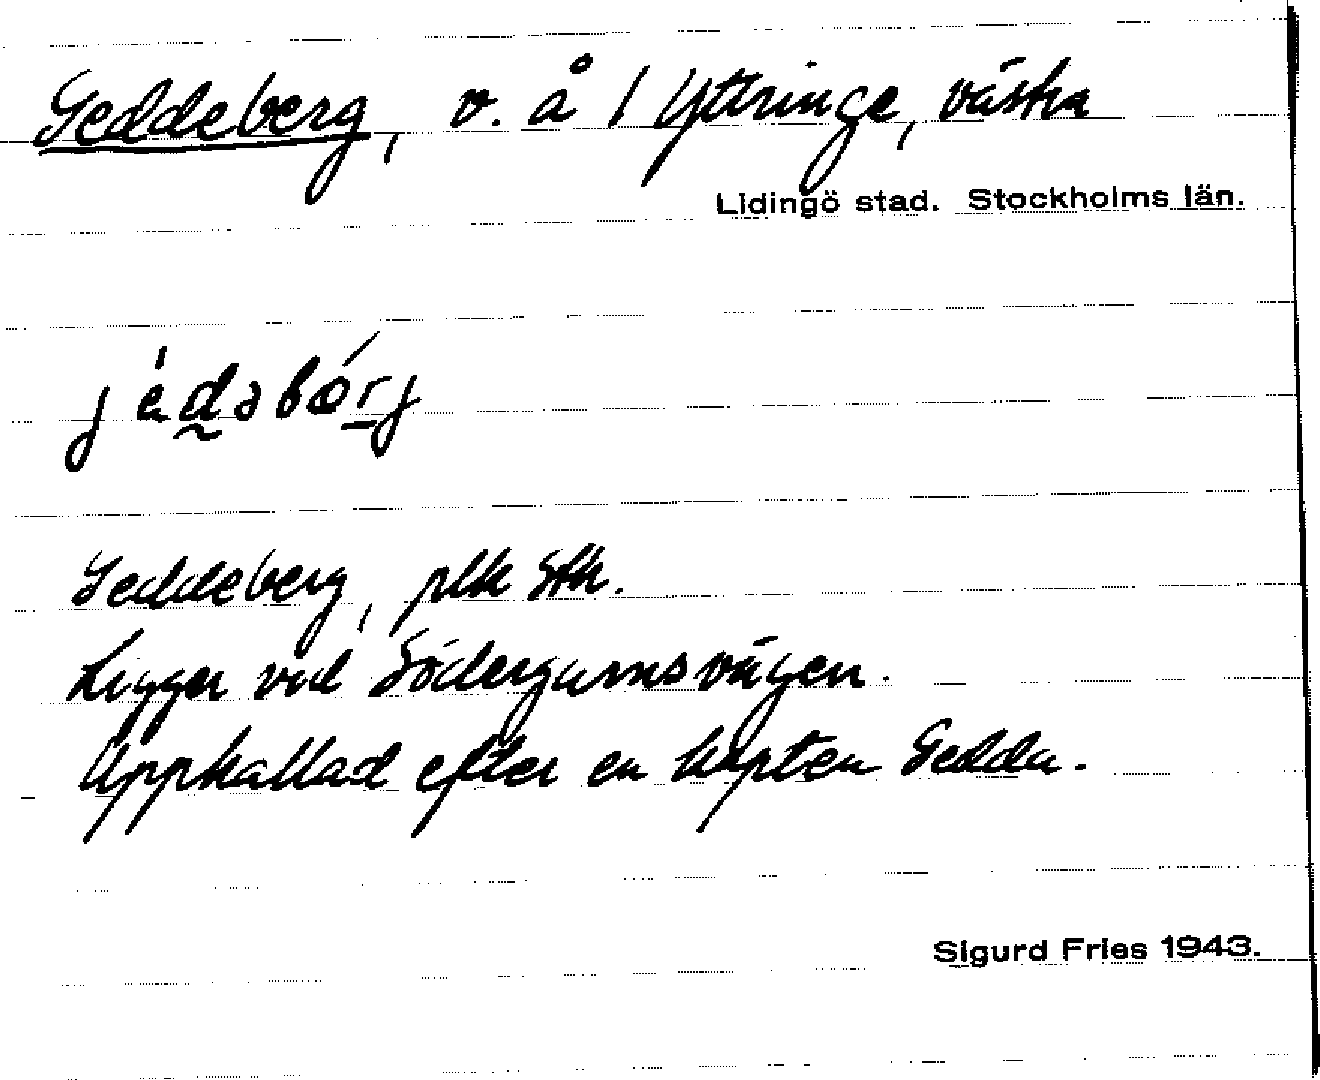 Geddeberg, v. å / Yttringe, västra
Lidingö stad. Stockholms län.
jèdəbárj
Geddeberg, plk Stk.
Ligger vid Södergarnsvägen.
Uppkallad efter en kapten Gedda.
Sigurd Fries 1943.